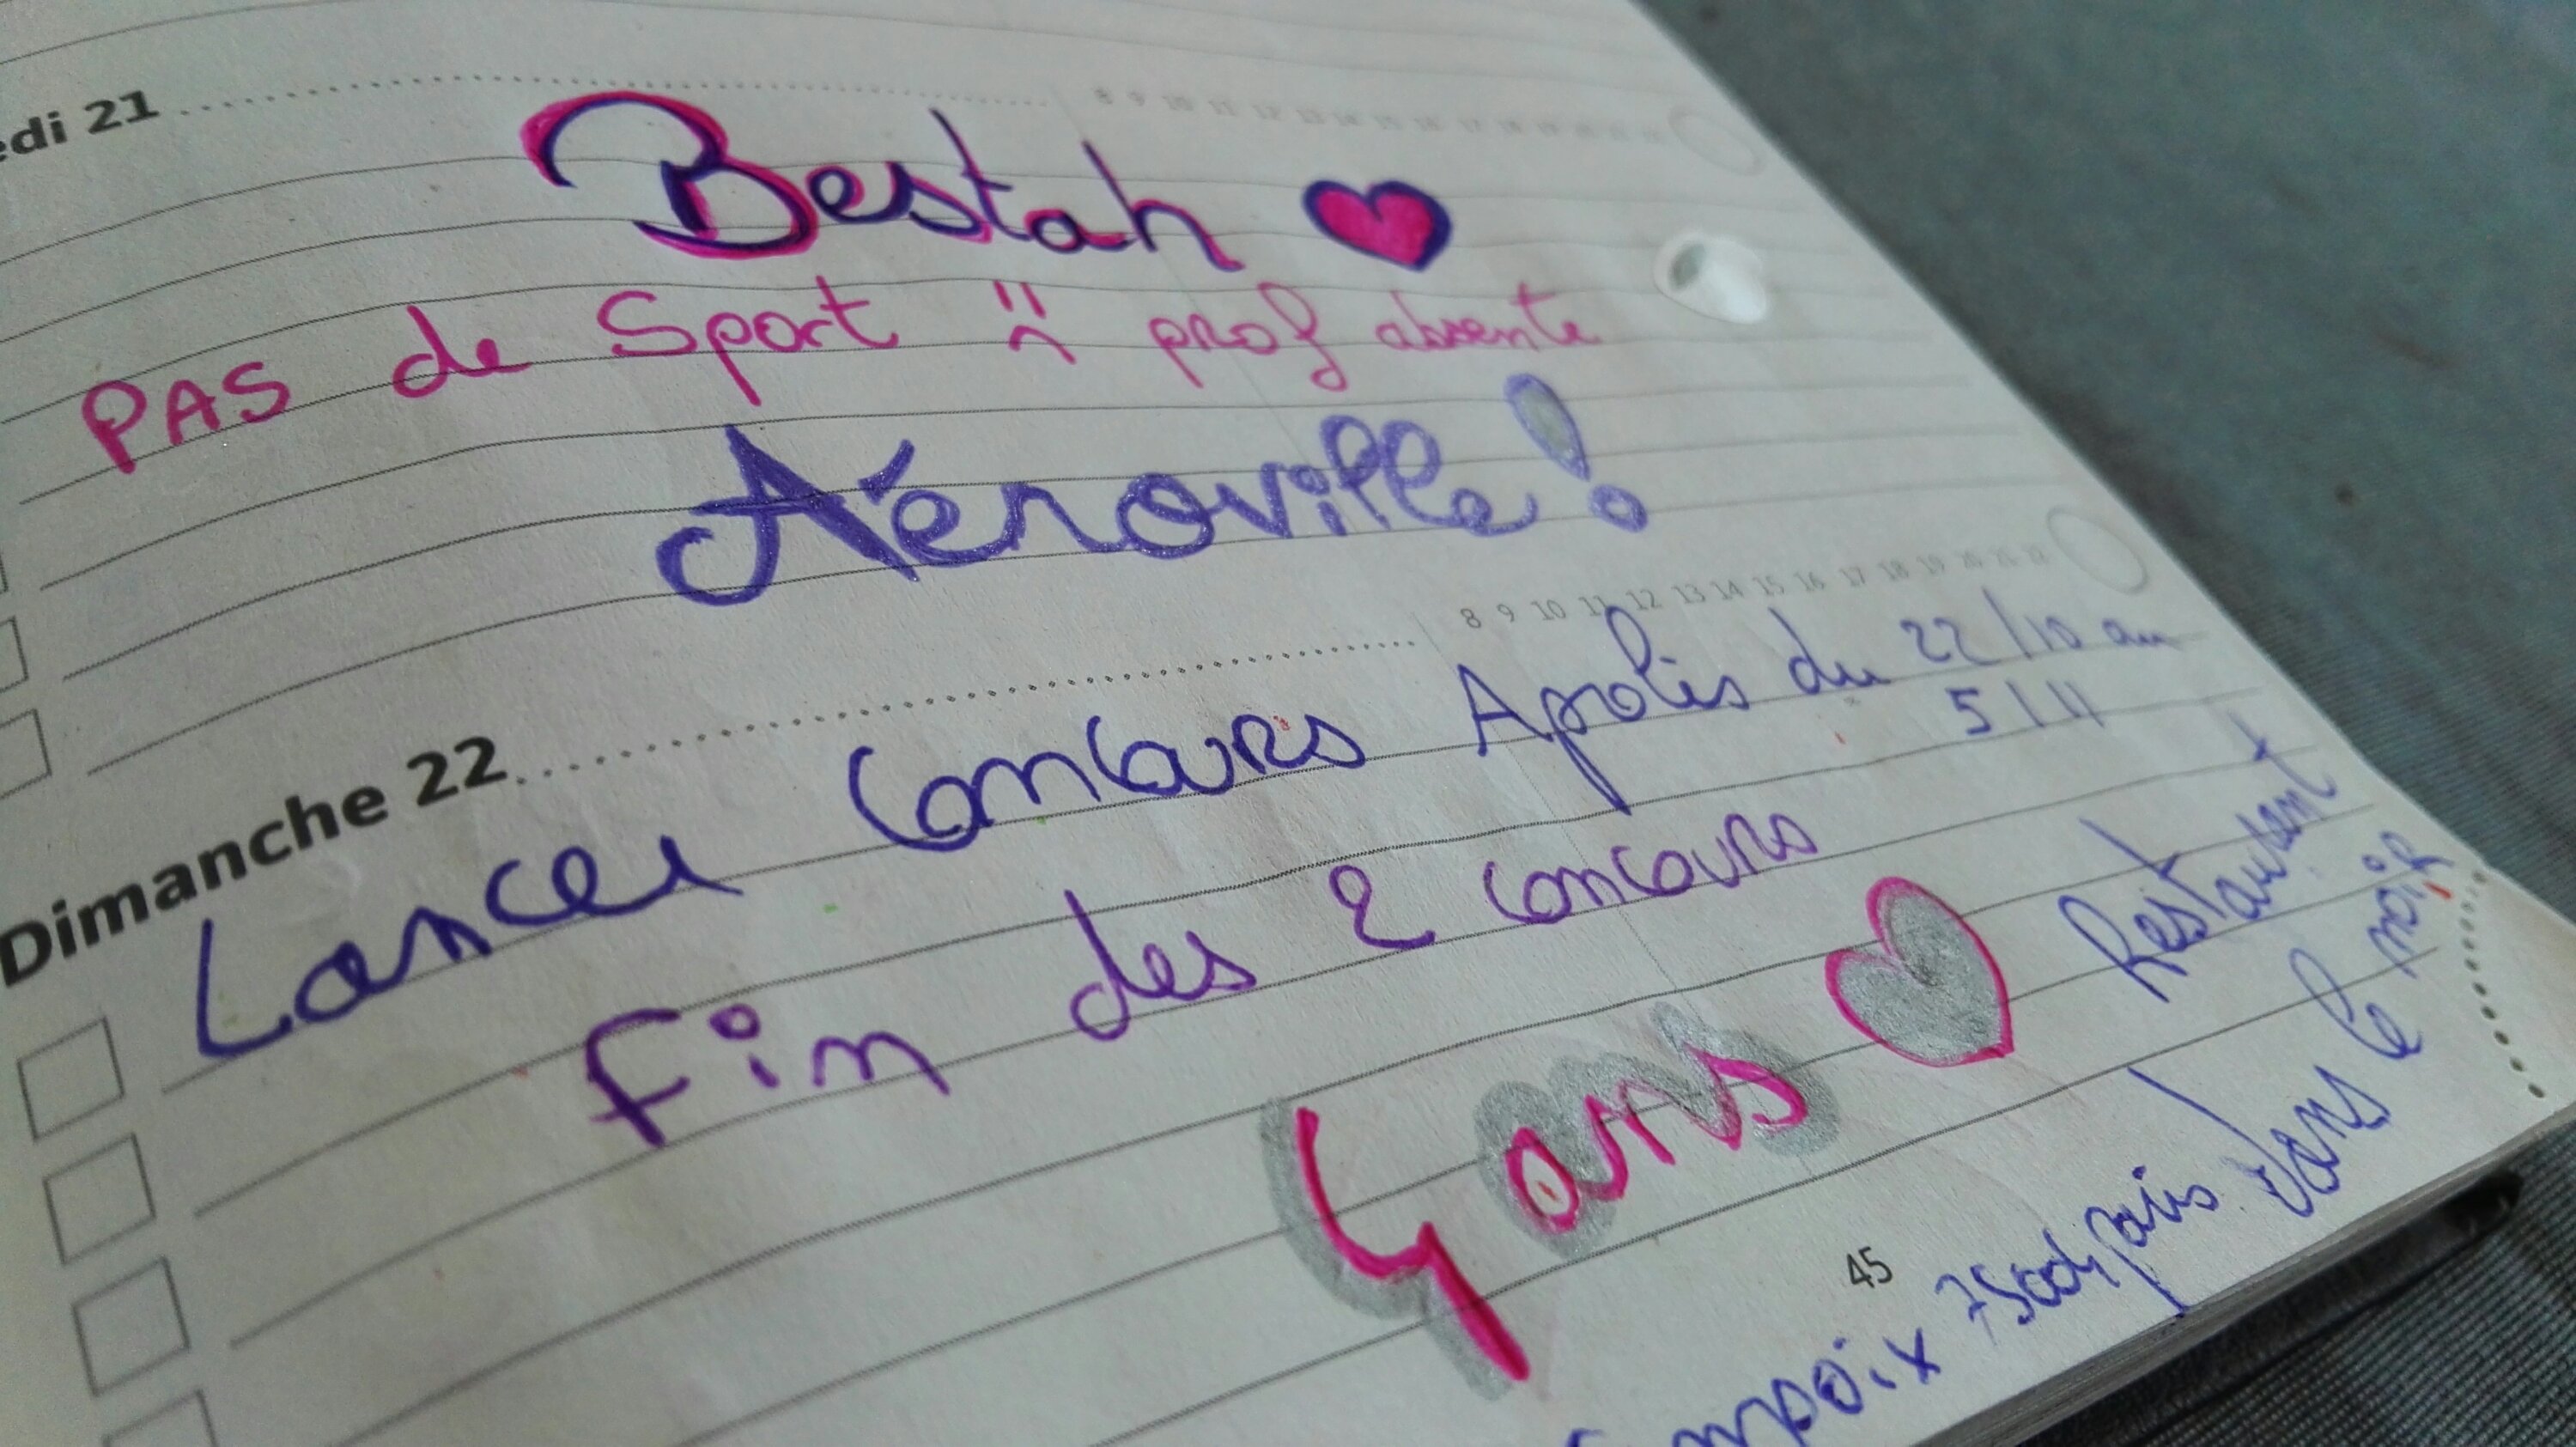 edi 21
8 9 10 11 12 13 14 15 16 17 18 19 20 21 22
Bestah
PAS de Sport prof absente
Aéroville!
8 9 10 11 12 13 14 15 16 17 18 19 20 21 22
Dimanche 22
Lancer Concours Apolis du 22/10 au
5/11
Fin des 2 concours
4 ans
Restaurant
Dans le noir
mpoix 75004 paris
45